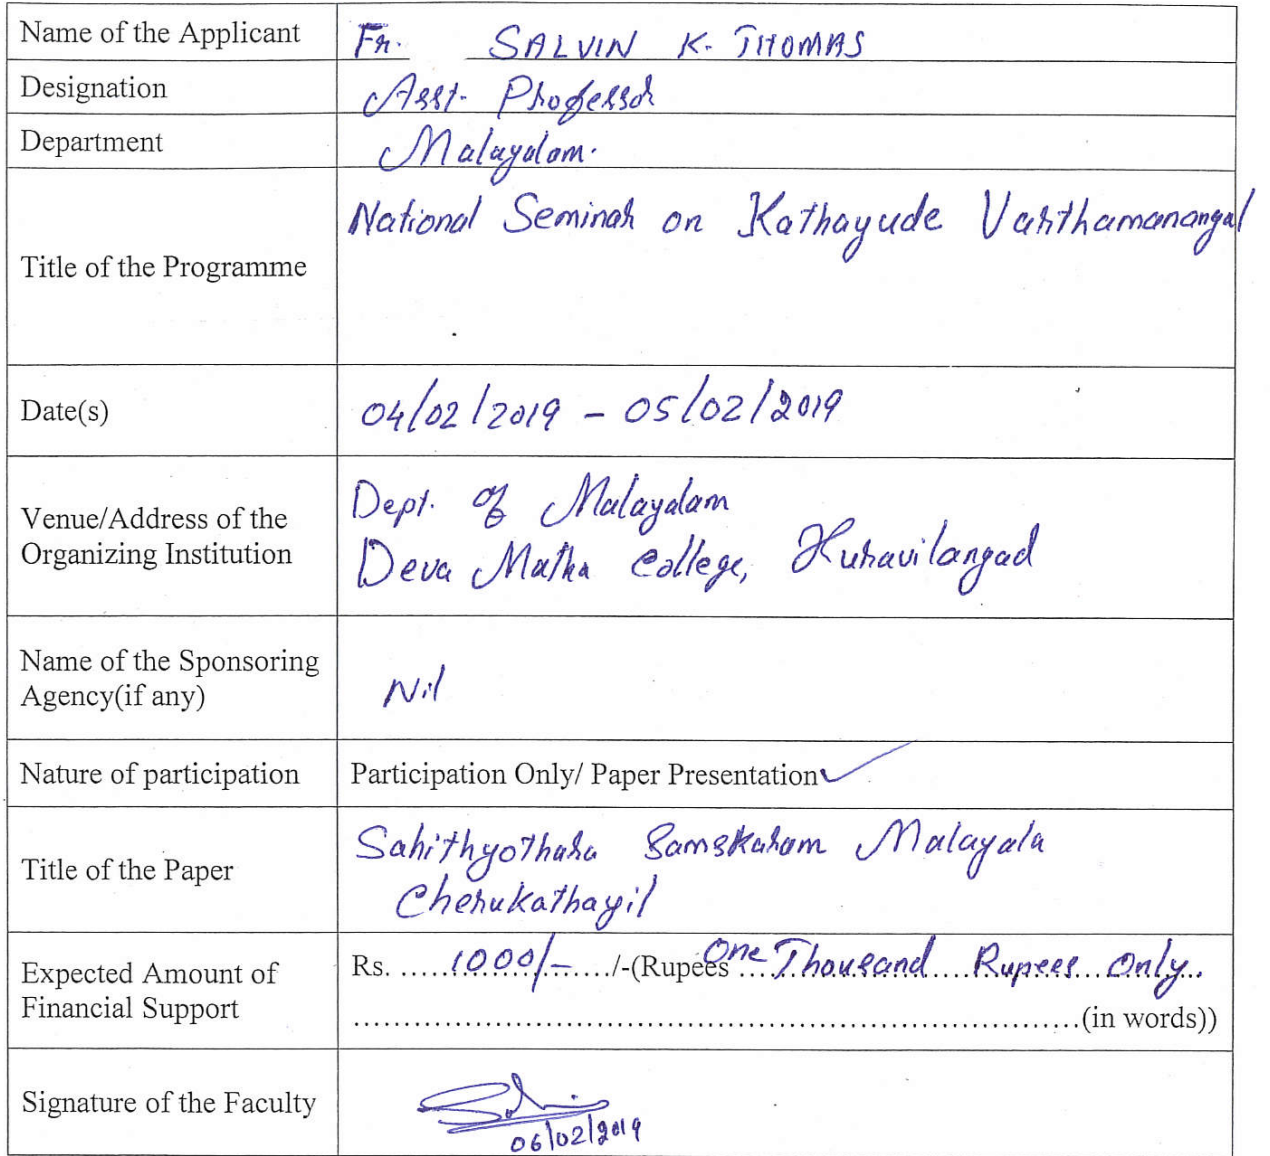 Name of the Applicant Fr. SALVIN K. THOMAS
Designation Asst. Professor
Department Malayalam.
National Seminar on Kathayude Varthamanangal
Title of the Programme
Date(s) 04/02/2019 - 05/02/2019
Venue/Address of the
Organizing Institution
Dept. of Malayalam
Deva Matha College, Kuravilangad
Name of the Sponsoring
Agency(if any)
Nil
Nature of participation Participation Only/ Paper Presentation ✓
Title of the Paper
Sahithyothara Samskaram Malayala
Cherukathayil
Expected Amount of
Financial Support
Rs. .....1000/-......./-(Rupees ...One Thousand....Rupees...Only..
........................................................................(in words))
Signature of the Faculty
06/02/2019